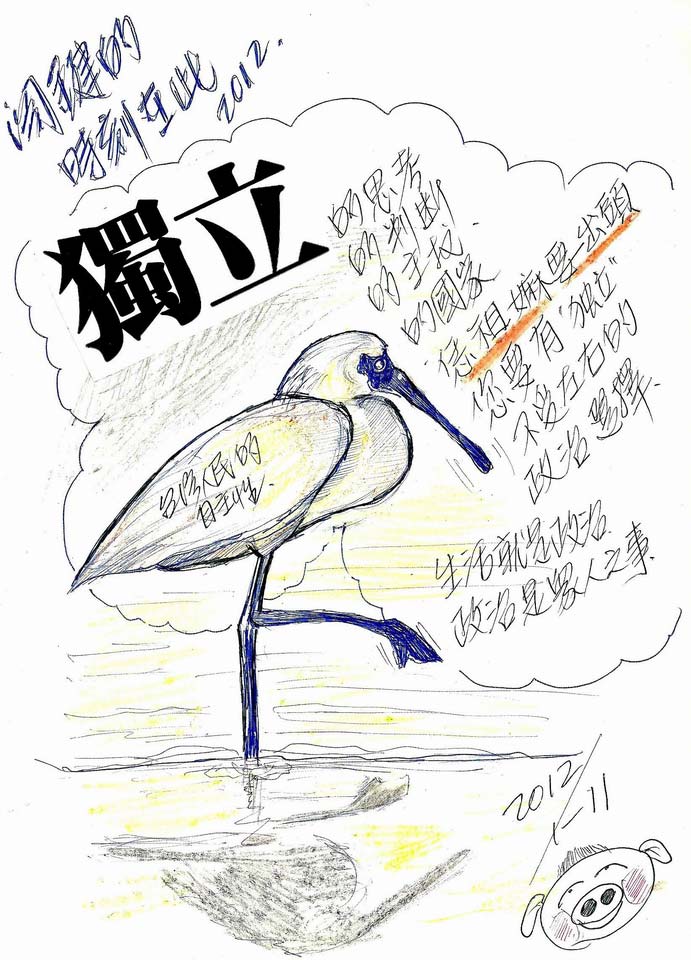 關鍵的
時刻在此 2012.
獨立
的思考
的判断
的主
的國家
恁祖嫲要出頭
您要有"独立"
不受左右的
政治選擇.
台灣人民的
自主性.
生活就是政治.
政治是眾人之事.
2012/1-11